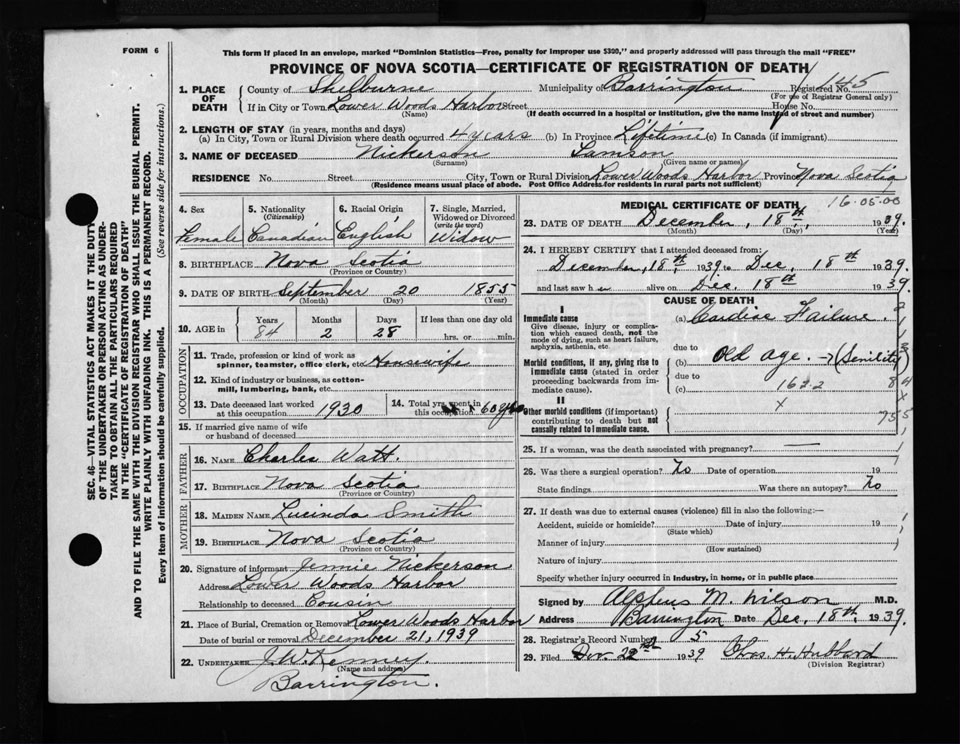 FORM 6
This form if placed in an envelope, marked "Dominion Statistics—Free, penalty for improper use $300," and properly addressed will pass through the mail "FREE"
PROVINCE OF NOVA SCOTIA—CERTIFICATE OF REGISTRATION OF DEATH
1. PLACE OF DEATH County of Shelburne Municipality of Barrington Registered No. 145
(For use of Registrar General only)
If in City or Town Lower Woods Harbor Street House No.
(Name) (If death occurred in a hospital or institution, give the name instead of street and number)
2. LENGTH OF STAY (in years, months and days)
(a) In City, Town or Rural Division where death occurred 4 years (b) In Province Lifetime (c) In Canada (if immigrant)
3. NAME OF DECEASED Nickerson
(Surname) (Given name or names)
RESIDENCE No. Street City, Town or Rural Division Lower Woods Harbor Province Nova Scotia
(Residence means usual place of abode. Post Office Address for residents in rural parts not sufficient)
4. Sex Female
5. Nationality (Citizenship) Canadian
6. Racial Origin English
7. Single, Married, Widowed or Divorced (write the word) Widow
8. BIRTHPLACE Nova Scotia
(Province or Country)
9. DATE OF BIRTH September 20 1855
(Month) (Day) (Year)
10. AGE in Years Months Days If less than one day old
84 2 28 hrs. or min.
OCCUPATION
11. Trade, profession or kind of work as spinner, teamster, office clerk, etc. Housewife
12. Kind of industry or business, as cotton-mill, lumbering, bank, etc.
13. Date deceased last worked at this occupation 1930
14. Total yrs. spent in this 60
15. If married give name of wife or husband of deceased
FATHER
16. NAME Charles Watt
17. BIRTHPLACE Nova Scotia
(Province or Country)
MOTHER
18. MAIDEN NAME Lucinda Smith
19. BIRTHPLACE Nova Scotia
(Province or Country)
20. Signature of informant Jennie Nickerson
Address Lower Woods Harbor
Relationship to deceased Cousin
21. Place of Burial, Cremation or Removal Lower Woods Harbor
Date of burial or removal December 21, 1939
22. UNDERTAKER J. W. Kenney.
(Name and address)
Barrington.
MEDICAL CERTIFICATE OF DEATH
16-05-00
23. DATE OF DEATH December, 18th, 1939.
(Month) (Day) (Year)
24. I HEREBY CERTIFY that I attended deceased from:
December, 18th, 1939 to Dec. 18th 1939.
and last saw h er alive on Dec. 18th 1939.
CAUSE OF DEATH
I
Immediate cause (a) Cardiac Failure.
Give disease, injury or complication which caused death, not the mode of dying, such as heart failure, asphyxia, asthenia, etc.
due to
Morbid conditions, if any, giving rise to immediate cause (stated in order proceeding backwards from immediate cause).
(b) Old age. (Senility)
due to
(c) 162-2
II
Other morbid conditions (if important) contributing to death but not causally related to immediate cause.
25. If a woman, was the death associated with pregnancy?
26. Was there a surgical operation? No Date of operation 19
State findings Was there an autopsy? No
27. If death was due to external causes (violence) fill in also the following:—
Accident, suicide or homicide? Date of injury 19
(State which)
Manner of injury
(How sustained)
Nature of injury
Specify whether injury occurred in industry, in home, or in public place
Signed by Alpheus M. Wilson M.D.
Address Barrington Date Dec. 18th 1939.
28. Registrar's Record Number 5
29. Filed 22nd 1939 Chas. H. Hubbard
(Division Registrar)
SEC. 46—VITAL STATISTICS ACT MAKES IT THE DUTY
OF THE UNDERTAKER OR PERSON ACTING AS UNDER-
TAKER TO OBTAIN ALL THE PARTICULARS REQUIRED
IN THE "CERTIFICATE OF REGISTRATION OF DEATH"
AND TO FILE THE SAME WITH THE DIVISION REGISTRAR WHO SHALL ISSUE THE BURIAL PERMIT.
WRITE PLAINLY WITH UNFADING INK. THIS IS A PERMANENT RECORD.
Every item of information should be carefully supplied. (See reverse side for instructions.)